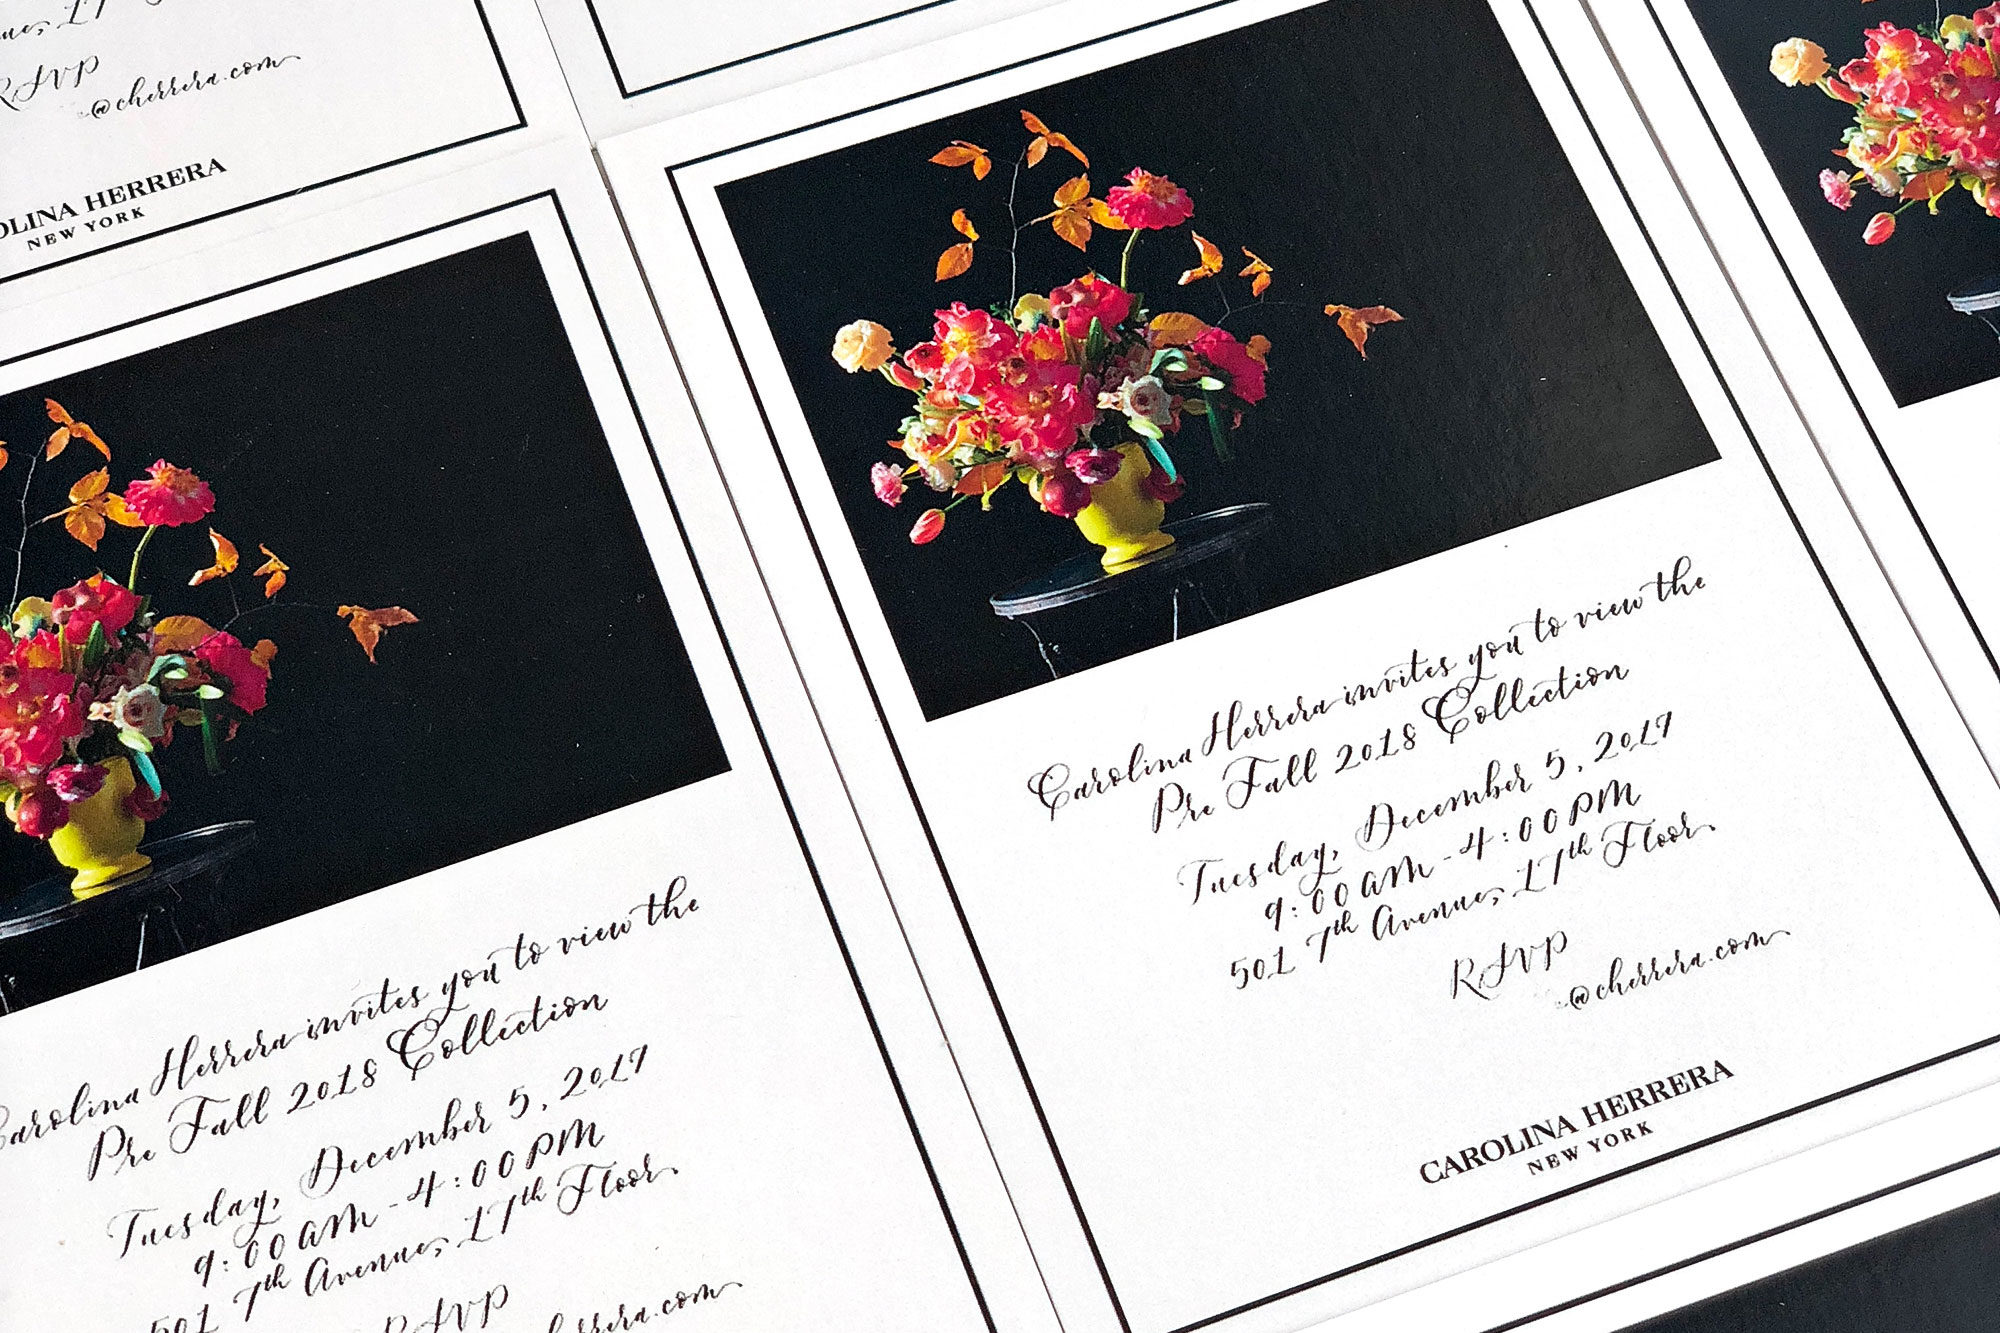 RSVP
@cherrera.com
CAROLINA HERRERA
NEW YORK
Carolina Herrera invites you to view the
Pre Fall 2018 Collection
Tuesday, December 5, 2017
9:00 AM - 4:00 PM
501 7th Avenue, 17th Floor
RSVP
@cherrera.com
Carolina Herrera invites you to view the
Pre Fall 2018 Collection
Tuesday, December 5, 2017
9:00 AM - 4:00 PM
501 7th Avenue, 17th Floor
RSVP
@cherrera.com
CAROLINA HERRERA
NEW YORK